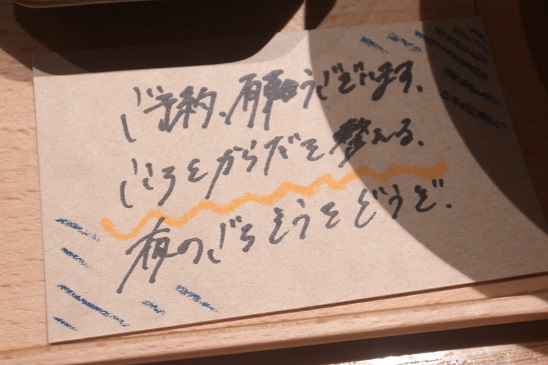 ご予約、有難うございます。
こころとからだを整える、
夜のごちそうをどうぞ。